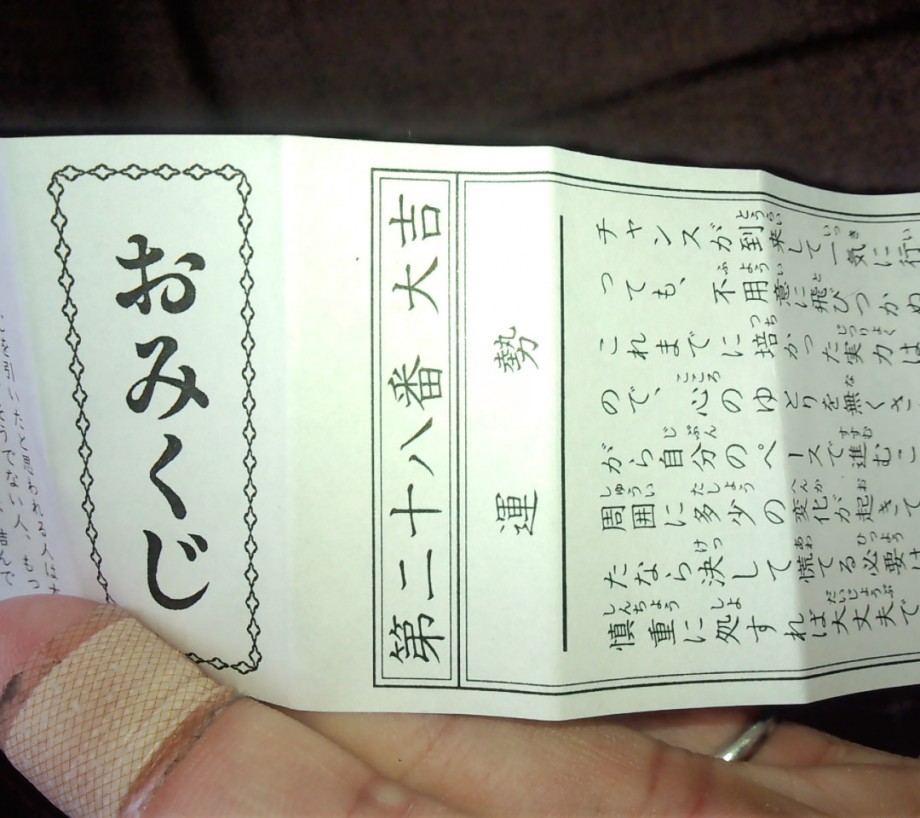 おみくじ
第二十八番 大吉
運勢
チャンスが到来して一気に行
っても、不用意に飛びつかぬ
これまでに培かった実力は
ので、心のゆとりを無くさ
がら自分のペースで進むこ
周囲に多少の変化が起きて
たなら決して慌てる必要は
慎重に処すれば大丈夫で